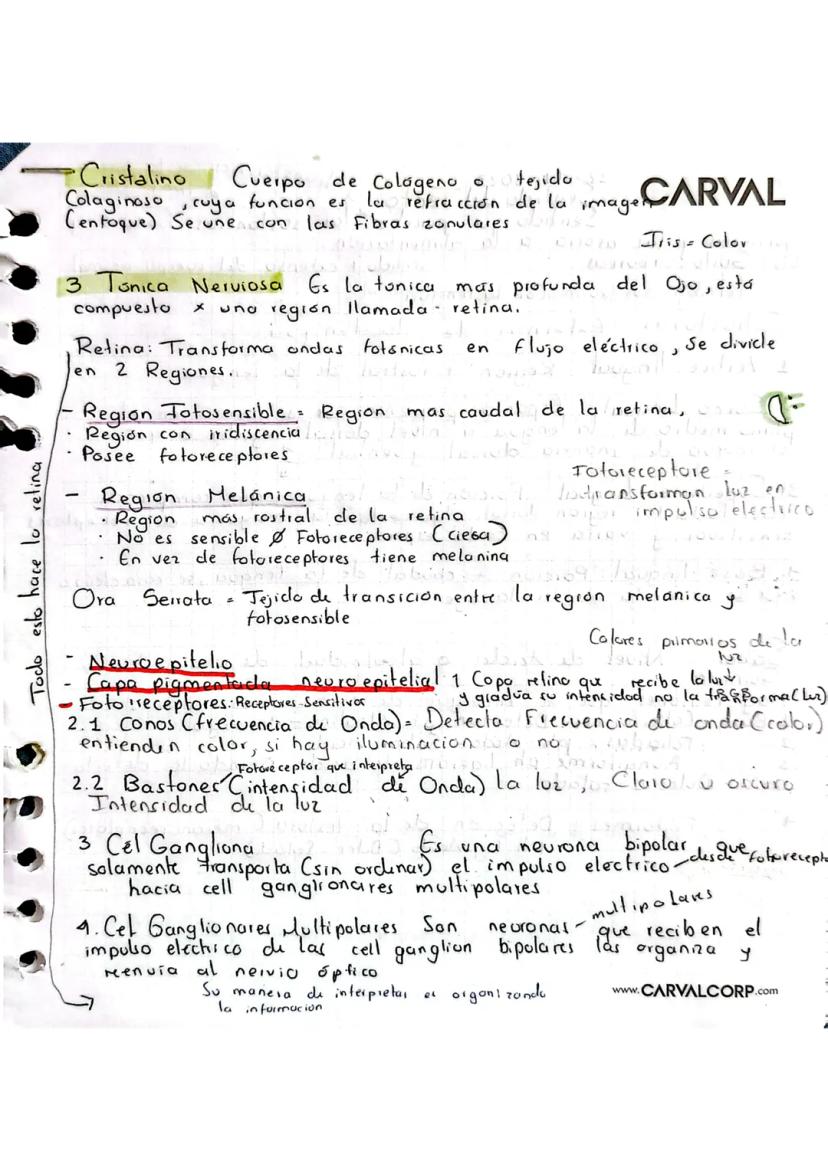 Cristalino Cuerpo de Colágeno o tejido
Colaginoso, cuya función es la refracción de la imagen
(enfoque) Se une con las Fibras zonulares
CARVAL
Iris = Color
3 Túnica Nerviosa Es la tunica mas profunda del Ojo, está
compuesto x una región llamada retina.
Retina: Transforma ondas fotónicas en flujo eléctrico, Se divide
en 2 Regiones.
- Región Fotosensible = Region mas caudal de la retina.
· Región con iridiscencia
· Posee fotoreceptores
Fotoreceptore =
transforman luz en
impulso electrico
- Región Melánica
· Región más rostral de la retina
· No es sensible Ø Fotoreceptores (ciega)
· En vez de fotoreceptores tiene melanina
Ora Serrata = Tejido de transición entre la región melanica y
fotosensible
Colores primarios de la
luz
- Neuroepitelio
- Capa pigmentada neuroepitelial 1 Capa retina que recibe la luz
y gradúa su intensidad no la transforma (luz)
- Fotorreceptores: Receptores Sensitivos
2.1 Conos (frecuencia de Onda) = Detecta Frecuencia de onda (color)
entienden color, si hay iluminacion o no
Fotoreceptor que interpreta
2.2 Bastones (intensidad de Onda) la luz, Claro u oscuro
Intensidad de la luz
3 Cél Gangliona Es una neurona bipolar que
solamente transporta (sin ordenar) el impulso electrico desde fotorecept
hacia cell ganglionares multipolares
4. Cel Ganglionares Multipolares Son neuronas multipolares que reciben el
impulso electrico de las cell ganglion bipolares las organiza y
reenvia al nervio óptico
Su manera de interpretar es organizando
la informacion
Todo esto hace la retina
www.CARVALCORP.com